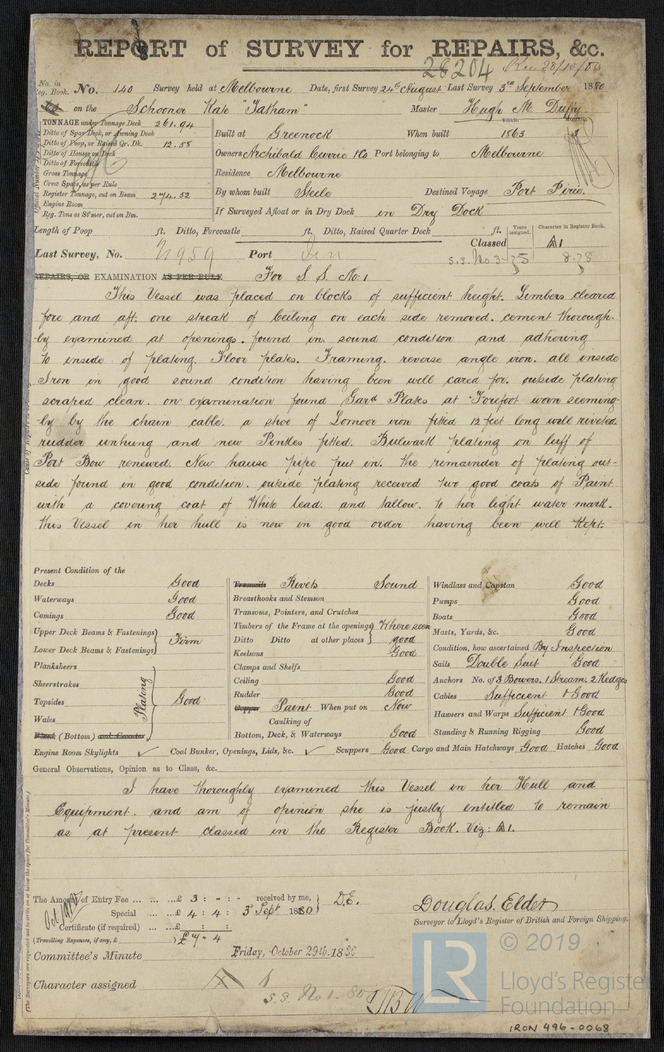 REPORT of SURVEY for REPAIRS, &c.
28204 Rec 28/10/80
No. in Reg. Book. No. 140 Survey held at Melbourne Date, first Survey 24th August Last Survey 3rd September 1880
on the Schooner Kate "Tatham" Master Hugh M. Duffy
TONNAGE under Tonnage Deck 261.94
Ditto of Spar Deck, or Awning Deck
Ditto of Poop, or Raised Qr. Dk. 12.58
Ditto of Houses on Deck
Ditto of Forecastle
Gross Tonnage
Crew Space, as per Rule
Register Tonnage, cut on Beam 274.52
Engine Room
Reg. Tons as St'mer, cut on Bm.
Built at Greenock When built 1863
Owners Archibald Currie & Co Port belonging to Melbourne
Residence Melbourne
By whom built Steele Destined Voyage Port Pirie.
If Surveyed Afloat or in Dry Dock in Dry Dock
Length of Poop ft. Ditto, Forecastle ft. Ditto, Raised Quarter Deck ft.
Years assigned. Character in Register Book.
Classed A1
Last Survey, No. Port
S.S. No. 3-75 8.78
REPAIRS, OR EXAMINATION AS PER RULE For S.S. No. 1
This Vessel was placed on blocks of sufficient height. Limbers cleared
fore and aft. one streak of Ceiling on each side removed. cement thorough-
ly examined at openings. found in sound condition and adhering
to inside of plating. Floor plates. Framing. reverse angle iron. all inside
Iron in good sound condition having been well cared for. outside plating
scraped clean. on examination found Gard Plates at "Forefoot worn seeming-
ly by the chain cable. a shoe of Lomoor iron fitted 12 feet long well riveted.
rudder unhung and new Pintles fitted. Bulwark plating on luff of
Port Bow renewed. New hause pipe put in. the remainder of plating out-
side found in good condition. outside plating received two good coats of Paint
with a covering coat of White lead. and tallow. to her light water mark.
this Vessel in her hull is now in good order having been well Kept.
Present Condition of the
Decks Good
Waterways Good
Comings Good
Upper Deck Beams & Fastenings
Lower Deck Beams & Fastenings Firm
Planksheers
Sheerstrakes
Topsides Plating Good
Wales
Plank (Bottom) and Counter
Treenails Rivets Sound
Breasthooks and Stemson
Transoms, Pointers, and Crutches
Timbers of the Frame at the openings Where seen
Ditto Ditto at other places good
Keelsons Good
Clamps and Shelfs
Ceiling Good
Rudder Good
Copper Paint When put on Now
Caulking of
Bottom, Deck, & Waterways Good
Windlass and Capstan Good
Pumps Good
Boats Good
Masts, Yards, &c. Good
Condition, how ascertained By Inspection
Sails Double Suit Good
Anchors No. of 3 Bowers. 1 Stream. 2 Kedges
Cables Sufficient & Good
Hawsers and Warps Sufficient & Good
Standing & Running Rigging Good
Engine Room Skylights ✓ Coal Bunker, Openings, Lids, &c. ✓ Scuppers Good Cargo and Main Hatchways Good Hatches Good
General Observations, Opinion as to Class, &c.
I have thoroughly examined this Vessel in her Hull and
Equipment. and am of opinion she is justly entitled to remain
as at present classed in the Register Book. Viz: A1.
The Amount of Entry Fee ... £ 3 : - : - received by me, D.E.
Special ... £ 4 : 4 : 3rd Sept 1880
Certificate (if required) ... £ : :
(Travelling Expenses, if any, £ ) £7-4
Douglas. Elder
Surveyor to Lloyd's Register of British and Foreign Shipping.
Committee's Minute Friday, October 29th. 1880
Character assigned A 1
S.S. No 1-80
© 2019
LR
Lloyd's Register
Foundation
IRON 496-0068